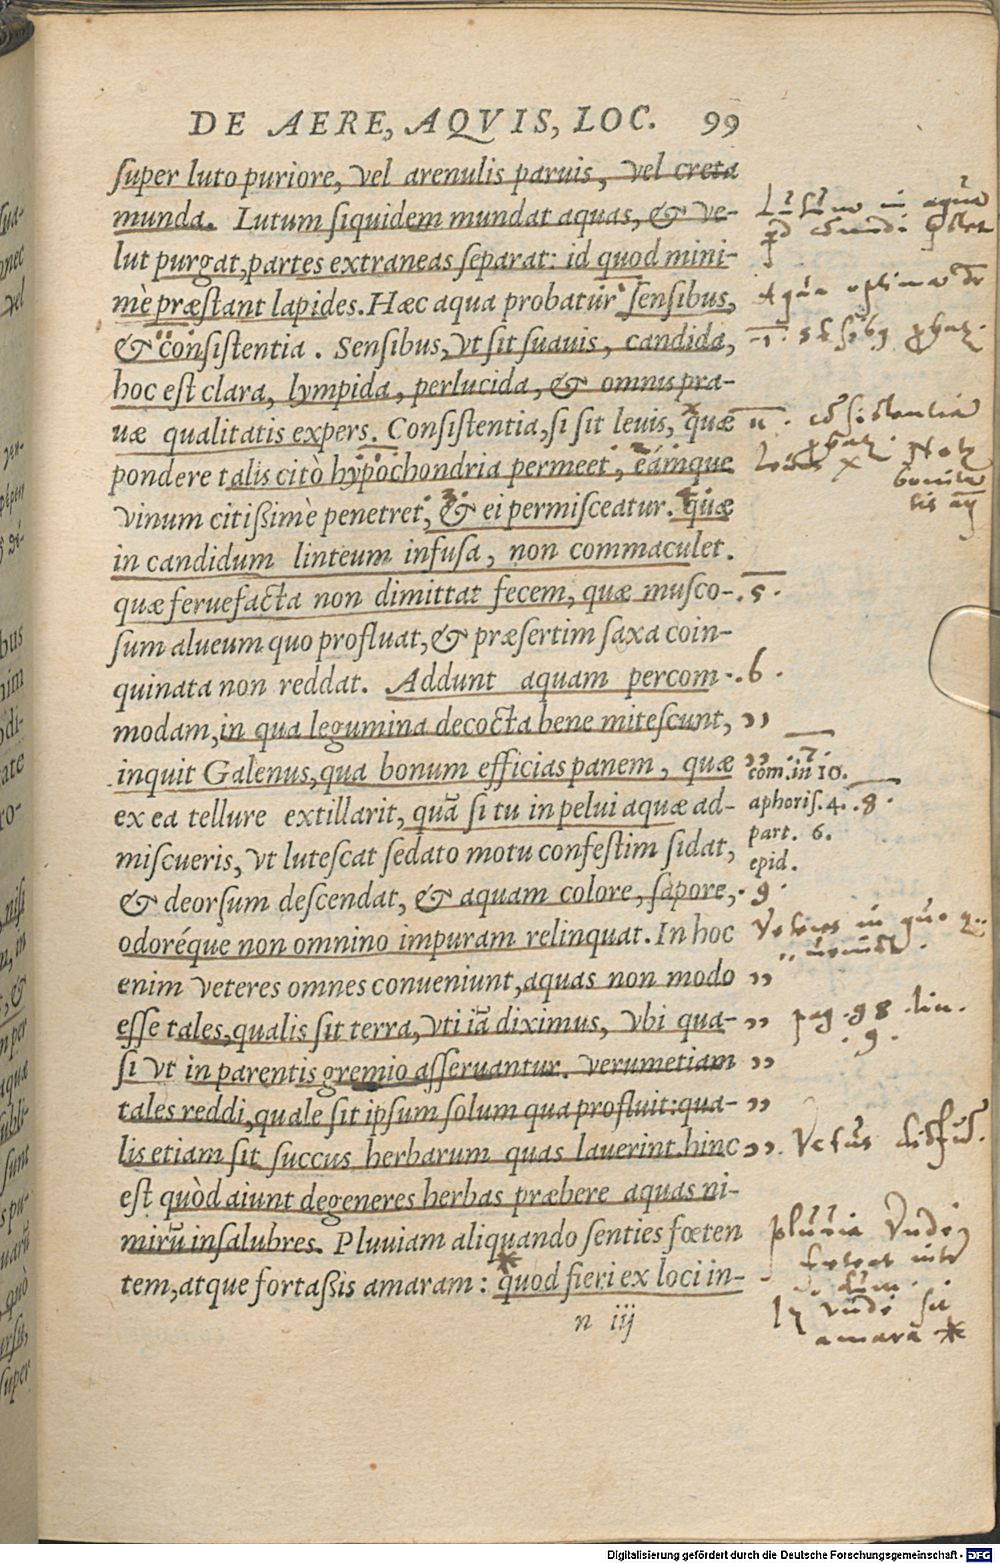 DE AERE, AQVIS, LOC. 99
super luto puriore, vel arenulis paruis, vel creta
munda. Lutum siquidem mundat aquas, & ve-
lut purgat, partes extraneas separat: id quod mini-
mè præstant lapides. Hæc aqua probatur sensibus,
& consistentia. Sensibus, vt sit suauis, candida,
hoc est clara, lympida, perlucida, & omnis pra-
uæ qualitatis expers. Consistentia, si sit leuis, quæ
pondere talis citò hypochondria permeet, eámque
vinum citißimè penetret, & ei permisceatur. quæ
in candidum linteum infusa, non commaculet.
quæ feruefacta non dimittat fecem, quæ musco-
sum alueum quo profluat, & præsertim saxa coin-
quinata non reddat. Addunt aquam percom-
modam, in qua legumina decocta bene mitescunt,
inquit Galenus, qua bonum efficias panem, quæ
ex ea tellure extillarit, quā si tu in pelui aquæ ad-
miscueris, vt lutescat sedato motu confestim sidat,
& deorsum descendat, & aquam colore, sapore,
odoréque non omnino impuram relinquat. In hoc
enim veteres omnes conueniunt, aquas non modo
esse tales, qualis sit terra, vti iā diximus, vbi qua-
si vt in parentis gremio asseruantur. verumetiam
tales reddi, quale sit ipsum solum qua profluit: qua-
lis etiam sit succus herbarum quas lauerint. hinc
est quòd aiunt degeneres herbas præbere aquas ni-
mirū insalubres. Pluuiam aliquando senties fœten
tem, atque fortaßis amaram: quod fieri ex loci in-
n iij
. 5 .
. 6 .
,,
,, . 7 .
com. in 10.
aphoris. 4. . 8 .
part. 6.
epid.
. 9 .
,,
,, pag. 98 . lin.
. 9 .
,,
,,
,,
pluuia vnde
vnde sit
amara *
Digitalisierung gefördert durch die Deutsche Forschungsgemeinschaft - DFG